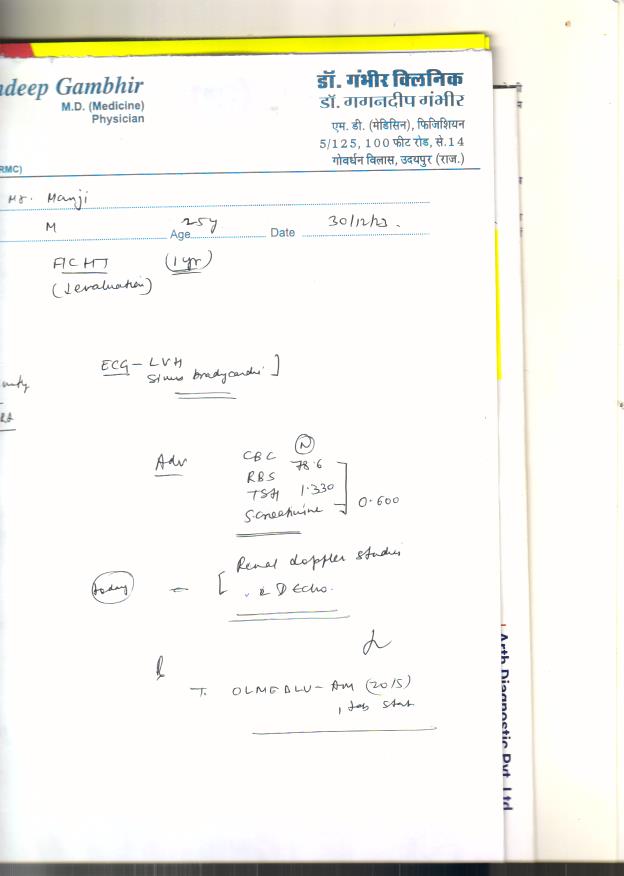 ndeep Gambhir
M.D. (Medicine)
Physician
RMC)
डॉ. गंभीर क्लिनिक
डॉ. गगनदीप गंभीर
एम. डी. (मेडिसिन), फिजिशियन
5/125, 100 फीट रोड, से.14
गोवर्धन विलास, उदयपुर (राज.)
Mr. Manji
M Age 25y Date 30/12/23.
(1 yr)
(evaluation)
ECG - LVH
Sinus bradycardi
Adv
CBC N
RBS 78.6
TSH 1.330
S. Creatinine 0.600
today
Renal doppler studies
2 D Echo.
T. OLMEBLU-AM (20/5)
Arth Diagnostic Pvt. Ltd